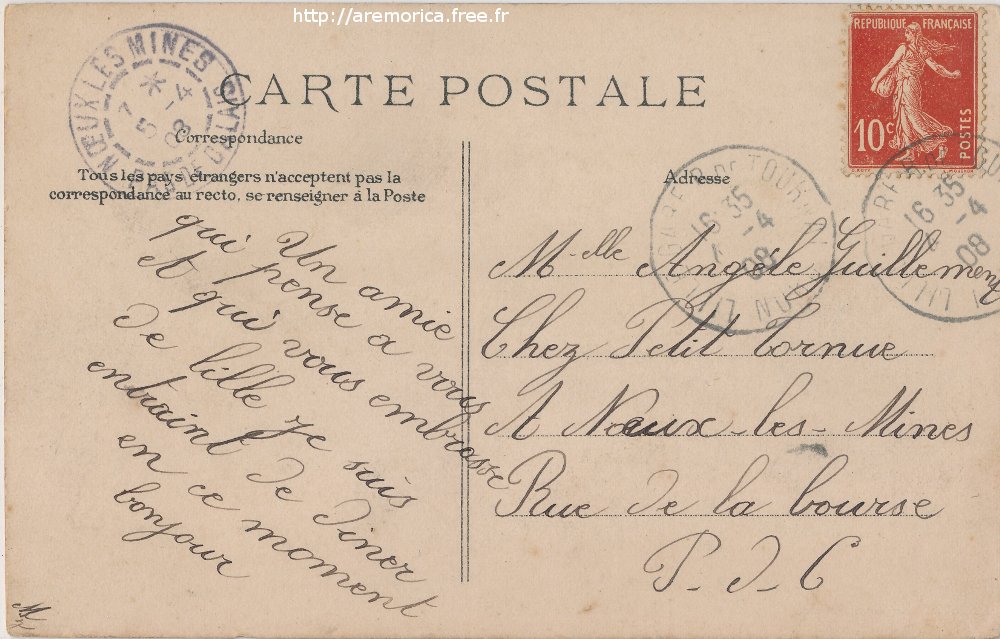 http://aremorica.free.fr
NŒUX LES MINES
7 *
5 -4
08
PAS DE CALAIS
CARTE POSTALE
REPUBLIQUE FRANÇAISE
10c
POSTES
Correspondance
Tous les pays étrangers n'acceptent pas la
correspondance au recto, se renseigner à la Poste
Adresse
GARE DE
LILLE
16 35
-4
08
16 35
-4
08
Un amie
qui pense a vous
et qui vous embrasse
de lille je suis
entraint de diner
en ce moment
bonjour
Melle Angéle
Chez Petit Cornue
A Nœux-les-Mines
Rue de la bourse
P-d-C